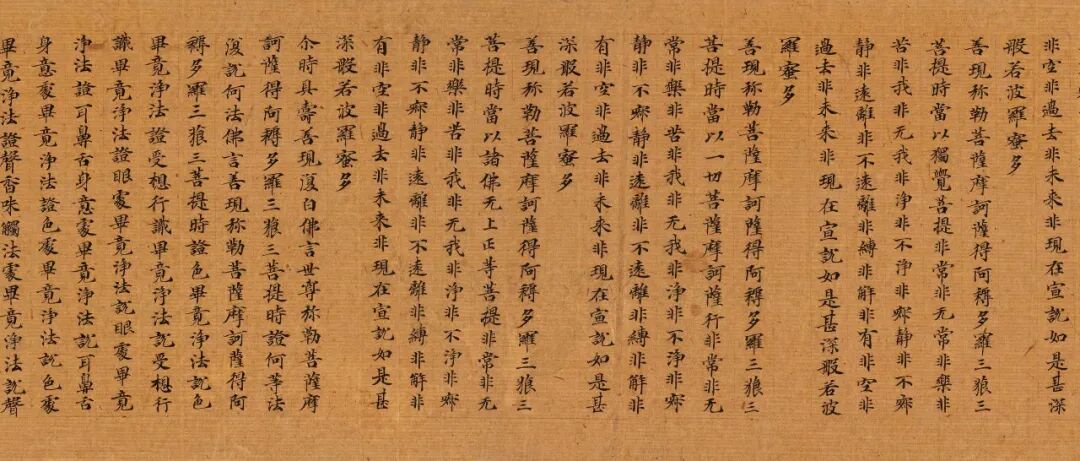 非空非過去非未来非現在宣說如是甚深
般若波羅蜜多
善現弥勒菩薩摩訶薩得阿耨多羅三藐三
菩提時當以獨覺菩提非常非无常非樂非
苦非我非无我非淨非不淨非寂靜非不寂
靜非遠離非不遠離非縛非解非有非空非
過去非未来非現在宣說如是甚深般若波
羅蜜多
善現弥勒菩薩摩訶薩得阿耨多羅三藐三
菩提時當以一切菩薩摩訶薩行非常非无
常非樂非苦非我非无我非淨非不淨非寂
靜非不寂靜非遠離非不遠離非縛非解非
有非空非過去非未来非現在宣說如是甚
深般若波羅蜜多
善現弥勒菩薩摩訶薩得阿耨多羅三藐三
菩提時當以諸佛无上正等菩提非常非无
常非樂非苦非我非无我非淨非不淨非寂
靜非不寂靜非遠離非不遠離非縛非解非
有非空非過去非未来非現在宣說如是甚
深般若波羅蜜多
尒時具壽善現復白佛言世尊弥勒菩薩摩
訶薩得阿耨多羅三藐三菩提時證何等法
復說何法佛言善現弥勒菩薩摩訶薩得阿
耨多羅三藐三菩提時證色畢竟淨法說色
畢竟淨法證受想行識畢竟淨法說受想行
識畢竟淨法證眼處畢竟淨法說眼處畢竟
淨法證耳鼻舌身意處畢竟淨法說耳鼻舌
身意處畢竟淨法證色處畢竟淨法說色處
畢竟淨法證聲香味觸法處畢竟淨法說聲